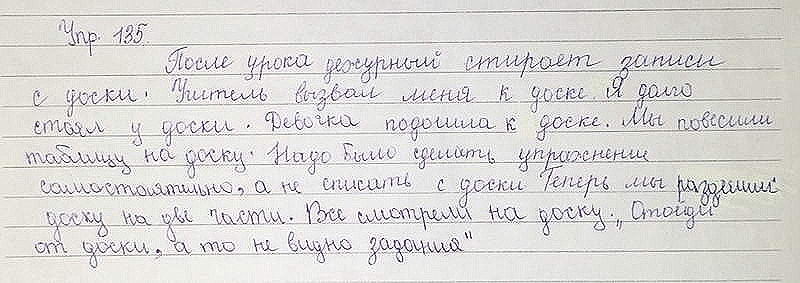 Упр. 135.
После урока дежурный стирает записи
с доски. Учитель вызвал меня к доске. Я долго
стоял у доски. Девочка подошла к доске. Мы повесили
таблицу на доску. Надо было сделать упражнение
самостоятельно, а не списать с доски Теперь мы разделили
доску на две части. Все смотрели на доску. „Отойди
от доски, а то не видно задания"